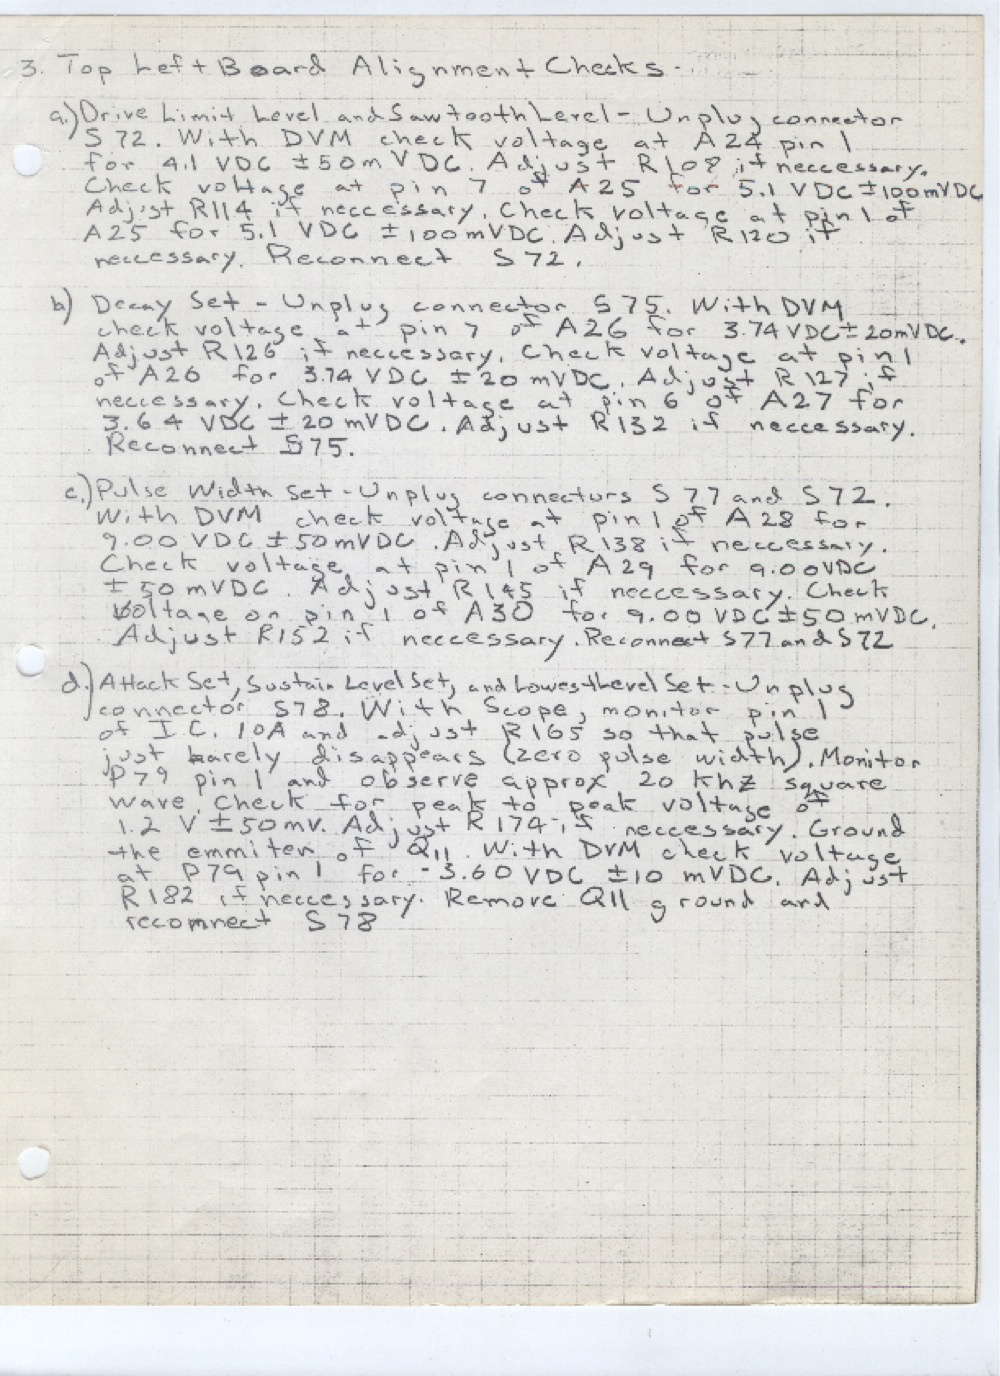 3. Top Left Board Alignment Checks -
a.) Drive Limit Level and Sawtooth Level - Unplug connector
S 72. With DVM check voltage at A24 pin 1
for 4.1 VDC ±50mVDC. Adjust R108 if neccessary.
Check voltage at pin 7 of A25 for 5.1 VDC ±100mVDC
Adjust R114 if neccessary. Check voltage at pin 1 of
A25 for 5.1 VDC ±100mVDC. Adjust R120 if
neccessary. Reconnect S72.
b) Decay Set - Unplug connector S75. With DVM
check voltage at pin 7 of A26 for 3.74 VDC ± 20mVDC.
Adjust R126 if neccessary. Check voltage at pin 1
of A26 for 3.74 VDC ±20 mVDC. Adjust R127 if
neccessary. Check voltage at pin 6 of A27 for
3.64 VDC ±20 mVDC. Adjust R132 if neccessary.
Reconnect S75.
c.) Pulse Width Set - Unplug connectors S77 and S72.
With DVM check voltage at pin 1 of A28 for
9.00 VDC ±50mVDC. Adjust R138 if neccessary.
Check voltage at pin 1 of A29 for 9.00VDC
±50mVDC. Adjust R145 if neccessary. Check
Voltage on pin 1 of A30 for 9.00 VDC ±50mVDC.
Adjust R152 if neccessary. Reconnect S77 and S72
d.) Attack Set, Sustain Level Set, and Lowest Level Set - Unplug
connector S78. With Scope, monitor pin 1
of I.C. 10A and adjust R165 so that pulse
just barely disappears (zero pulse width). Monitor
P79 pin 1 and observe approx 20 khz square
wave. Check for peak to peak voltage of
1.2 V ±50mv. Adjust R174 if neccessary. Ground
the emmiter of Q11. With DVM check voltage
at P79 pin 1 for -3.60 VDC ±10 mVDC. Adjust
R182 if neccessary. Remove Q11 ground and
reconnect S78